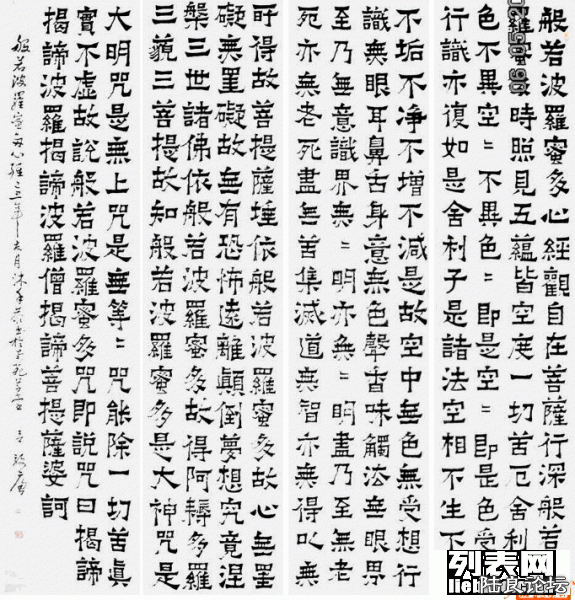 般若波羅蜜多心經觀自在菩薩行深般若
羅蜜時照見五蘊皆空度一切苦厄舍利
色不異空〻不異色〻即是空〻即是色受
行識亦復如是舍利子是諸法空相不生不
不垢不净不增不減是故空中無色無受想行
識無眼耳鼻舌身意無色聲香味觸法無眼界
至乃無意識界無〻明亦無〻明盡乃至無老
死亦無老死盡無苦集滅道無智亦無得以無
所得故菩提薩埵依般若波羅蜜多故心無罣
礙無罣礙故無有恐怖遠離顛倒夢想究竟涅
槃三世諸佛依般若波羅蜜多故得阿耨多羅
三藐三菩提故知般若波羅蜜多是大神咒是
大明咒是無上咒是無等〻咒能除一切苦真
實不虛故說般若波羅蜜多咒即說咒曰揭諦
揭諦波羅揭諦波羅僧揭諦菩提薩婆訶
般若波羅蜜多心經
列表网